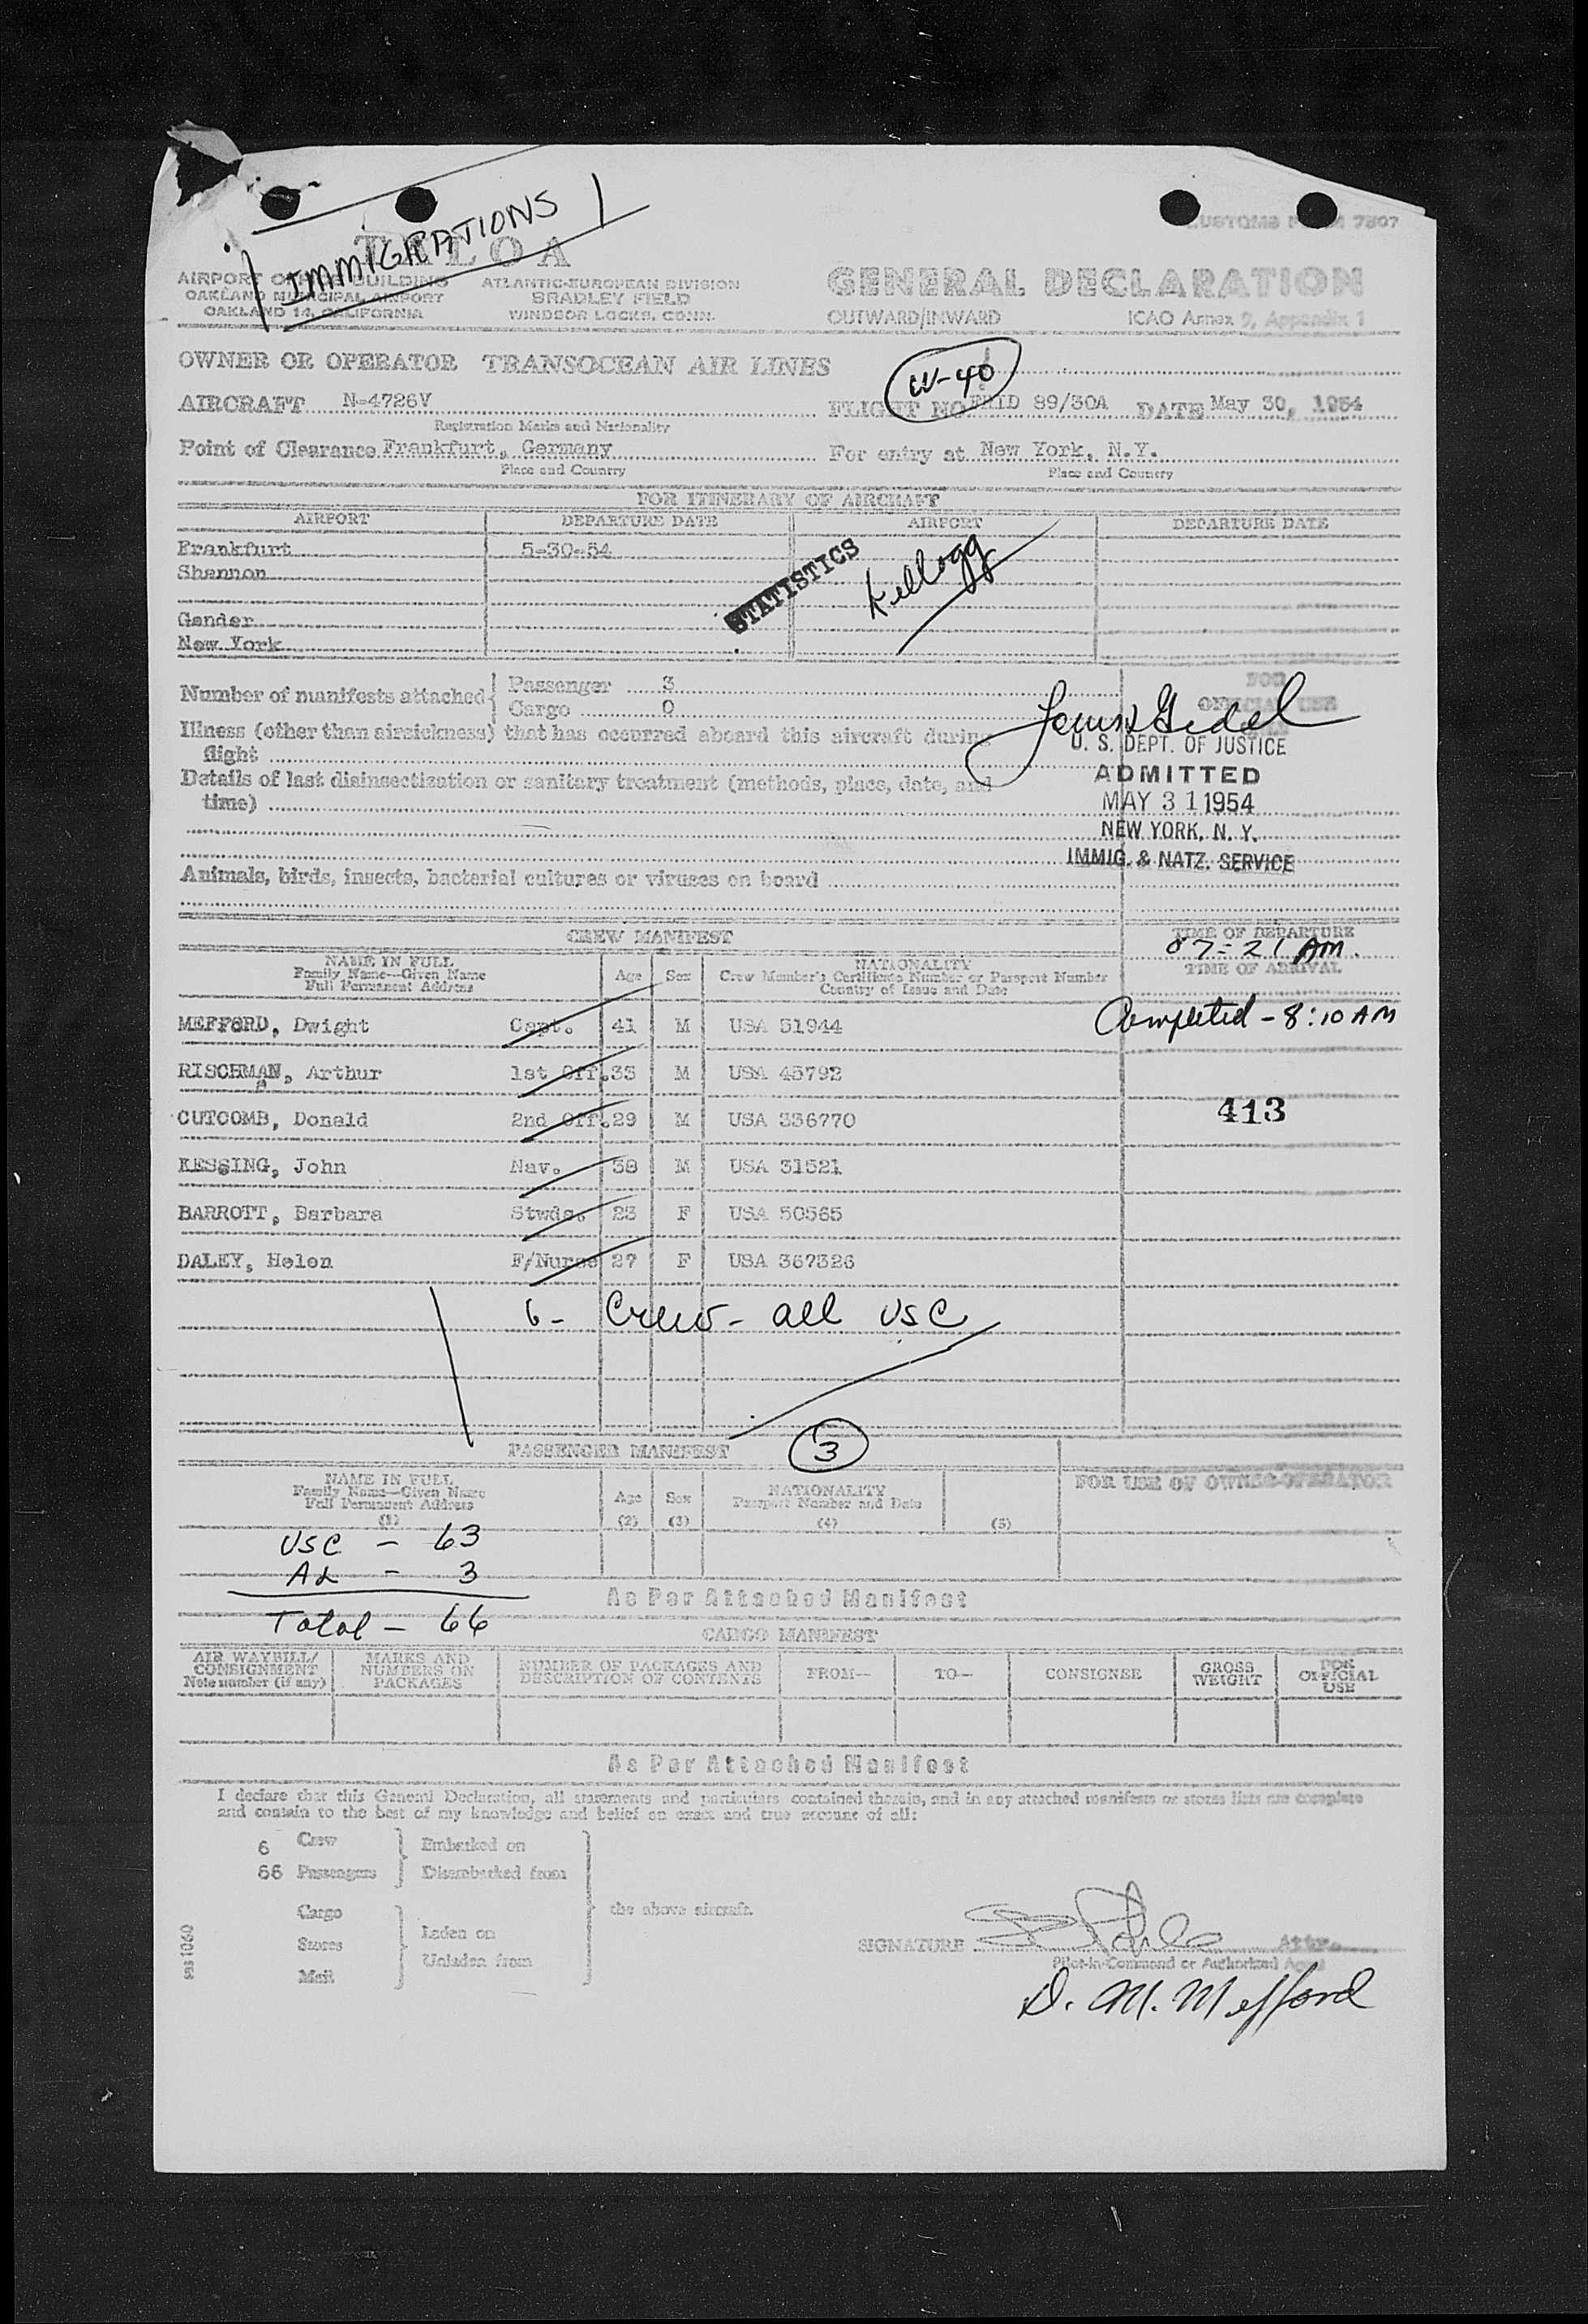 IMMIGRATIONS
CUSTOMS FORM 7507
T A L O A
AIRPORT OFFICE BUILDING
OAKLAND MUNICIPAL AIRPORT
OAKLAND 14, CALIFORNIA
ATLANTIC-EUROPEAN DIVISION
BRADLEY FIELD
WINDSOR LOCKS, CONN.
GENERAL DECLARATION
OUTWARD/INWARD ICAO Annex 9, Appendix 1
OWNER OR OPERATOR TRANSOCEAN AIR LINES
W-40
AIRCRAFT N-4726V FLIGHT NO. 89/30A DATE May 30, 1954
Registration Marks and Nationality
Point of Clearance Frankfurt, Germany For entry at New York, N.Y.
Place and Country Place and Country
FOR ITINERARY OF AIRCRAFT
AIRPORT DEPARTURE DATE AIRPORT DEPARTURE DATE
Frankfurt 5-30-54
Shannon
Gander
New York
STATISTICS
Kellogg
Number of manifests attached { Passenger 3
Cargo 0
FOR
OFFICIAL USE
Illness (other than airsickness) that has occurred aboard this aircraft during
flight
Details of last disinsectization or sanitary treatment (methods, place, date, and
time)
U. S. DEPT. OF JUSTICE
ADMITTED
MAY 31 1954
NEW YORK, N. Y.
IMMIG. & NATZ. SERVICE
Animals, birds, insects, bacterial cultures or viruses on board
CREW MANIFEST
TIME OF DEPARTURE
07:21 AM.
TIME OF ARRIVAL
Completed - 8:10 AM
413
NAME IN FULL
Family Name—Given Name
Full Permanent Address
Age Sex
NATIONALITY
Crew Member's Certificate Number or Passport Number
Country of Issue and Date
MEFFORD, Dwight Capt. 41 M USA 51944
RISCHMAN, Arthur 1st Off. 33 M USA 45792
CUTCOMB, Donald 2nd Off. 29 M USA 336770
KESSING, John Nav. 38 M USA 31521
BARROTT, Barbara Stwds. 23 F USA 50565
DALEY, Helen F/Nurse 27 F USA 367326
6 - Crew - all USC
PASSENGER MANIFEST
3
NAME IN FULL
Family Name—Given Name
Full Permanent Address
(1)
Age
(2)
Sex
(3)
NATIONALITY
Passport Number and Date
(4)
(5)
FOR USE OF OWNER-OPERATOR
USC - 63
AL - 3
Total - 66
As Per Attached Manifest
CARGO MANIFEST
AIR WAYBILL/
CONSIGNMENT
Note number (if any)
MARKS AND
NUMBERS ON
PACKAGES
NUMBER OF PACKAGES AND
DESCRIPTION OF CONTENTS
FROM— TO— CONSIGNEE
GROSS
WEIGHT
FOR
OFFICIAL
USE
As Per Attached Manifest
I declare that this General Declaration, all statements and particulars contained therein, and in any attached manifests or stores lists are complete
and contain to the best of my knowledge and belief an exact and true account of all:
6 Crew Embarked on
66 Passengers Disembarked from
the above aircraft.
Cargo
Stores
Mail
Laden on
Unladen from
SIGNATURE
Pilot-in-Command or Authorized Agent
D. M. Mefford